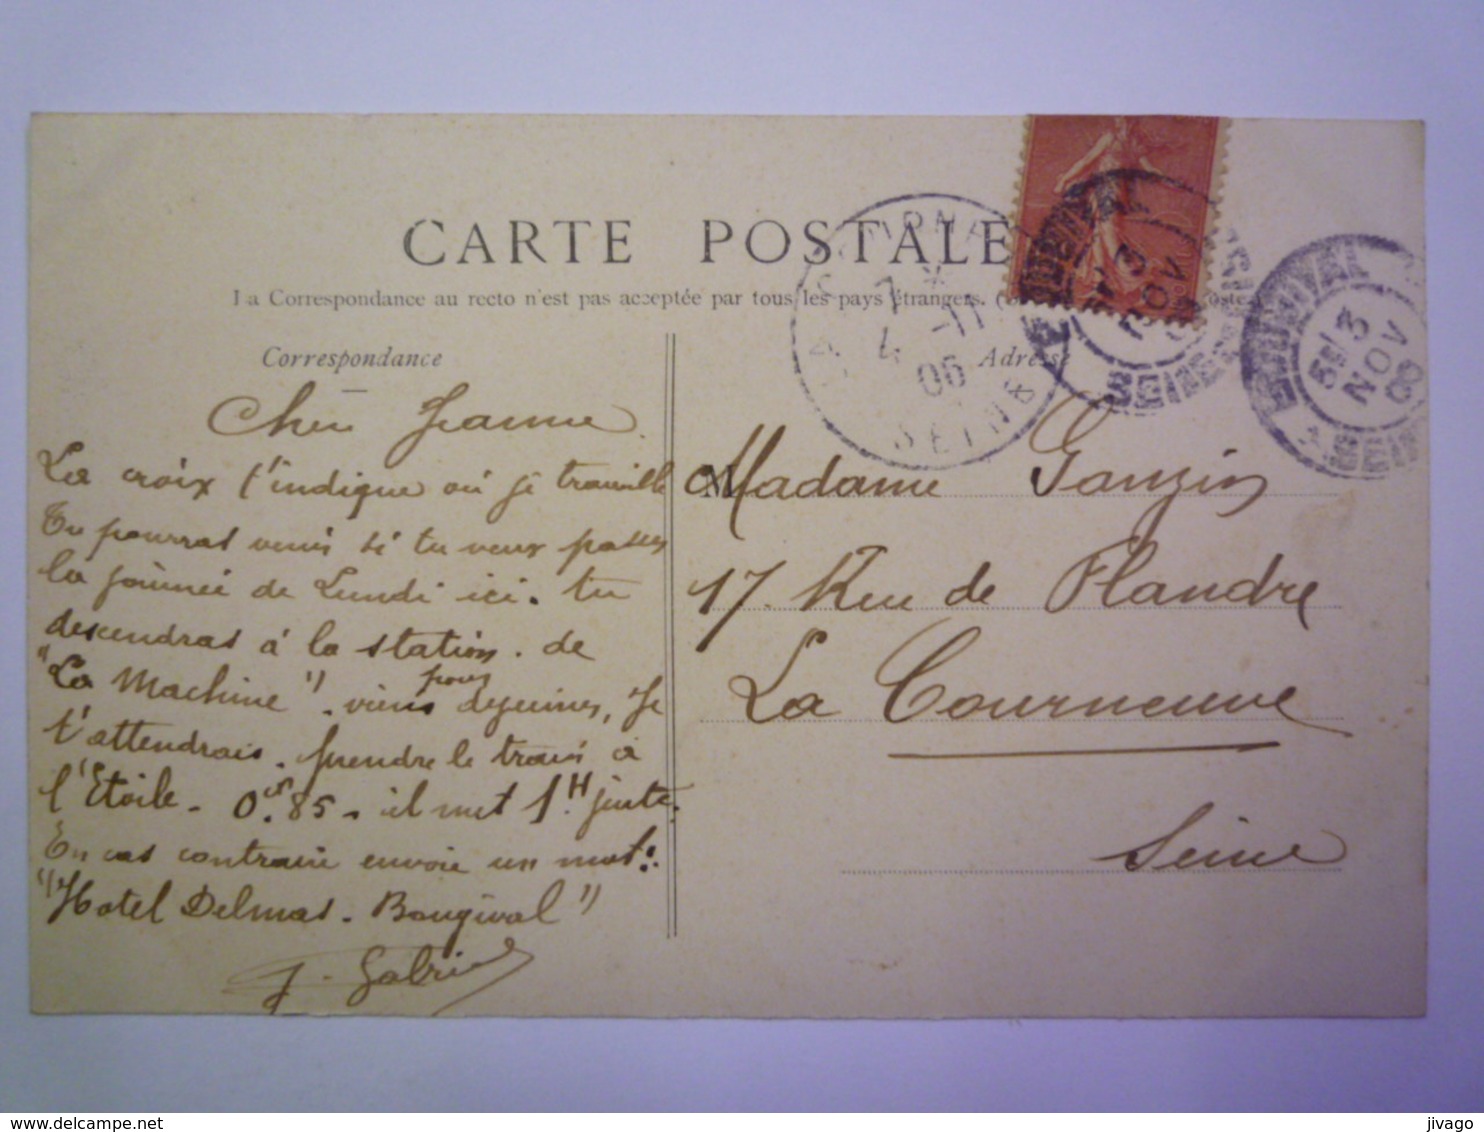 CARTE POSTALE
La Correspondance au recto n'est pas acceptée par tous les pays étrangers.
Correspondance
Chère Jeanne
La croix t'indique où je travaille
Tu pourras venir si tu veux passer
la journée de Lundi ici. tu
descendras à la station. de
"La Machine". viens pour dejeuner, Je
t'attendrais. prendre le train à
l'Etoile - 0.85 - il met 1.H juste.
En cas contraire envoie un mot:
"Hotel Delmas - Bougival"
Adresse
Madame Ganzin
17. Rue de Flandre
La Courneuve
Seine
LA COURNEUVE
7 *
4 -11
06
SEINE
BOUGIVAL
3
NOV
BOUGIVAL
3
NOV
06
jivago
www.delcampe.net